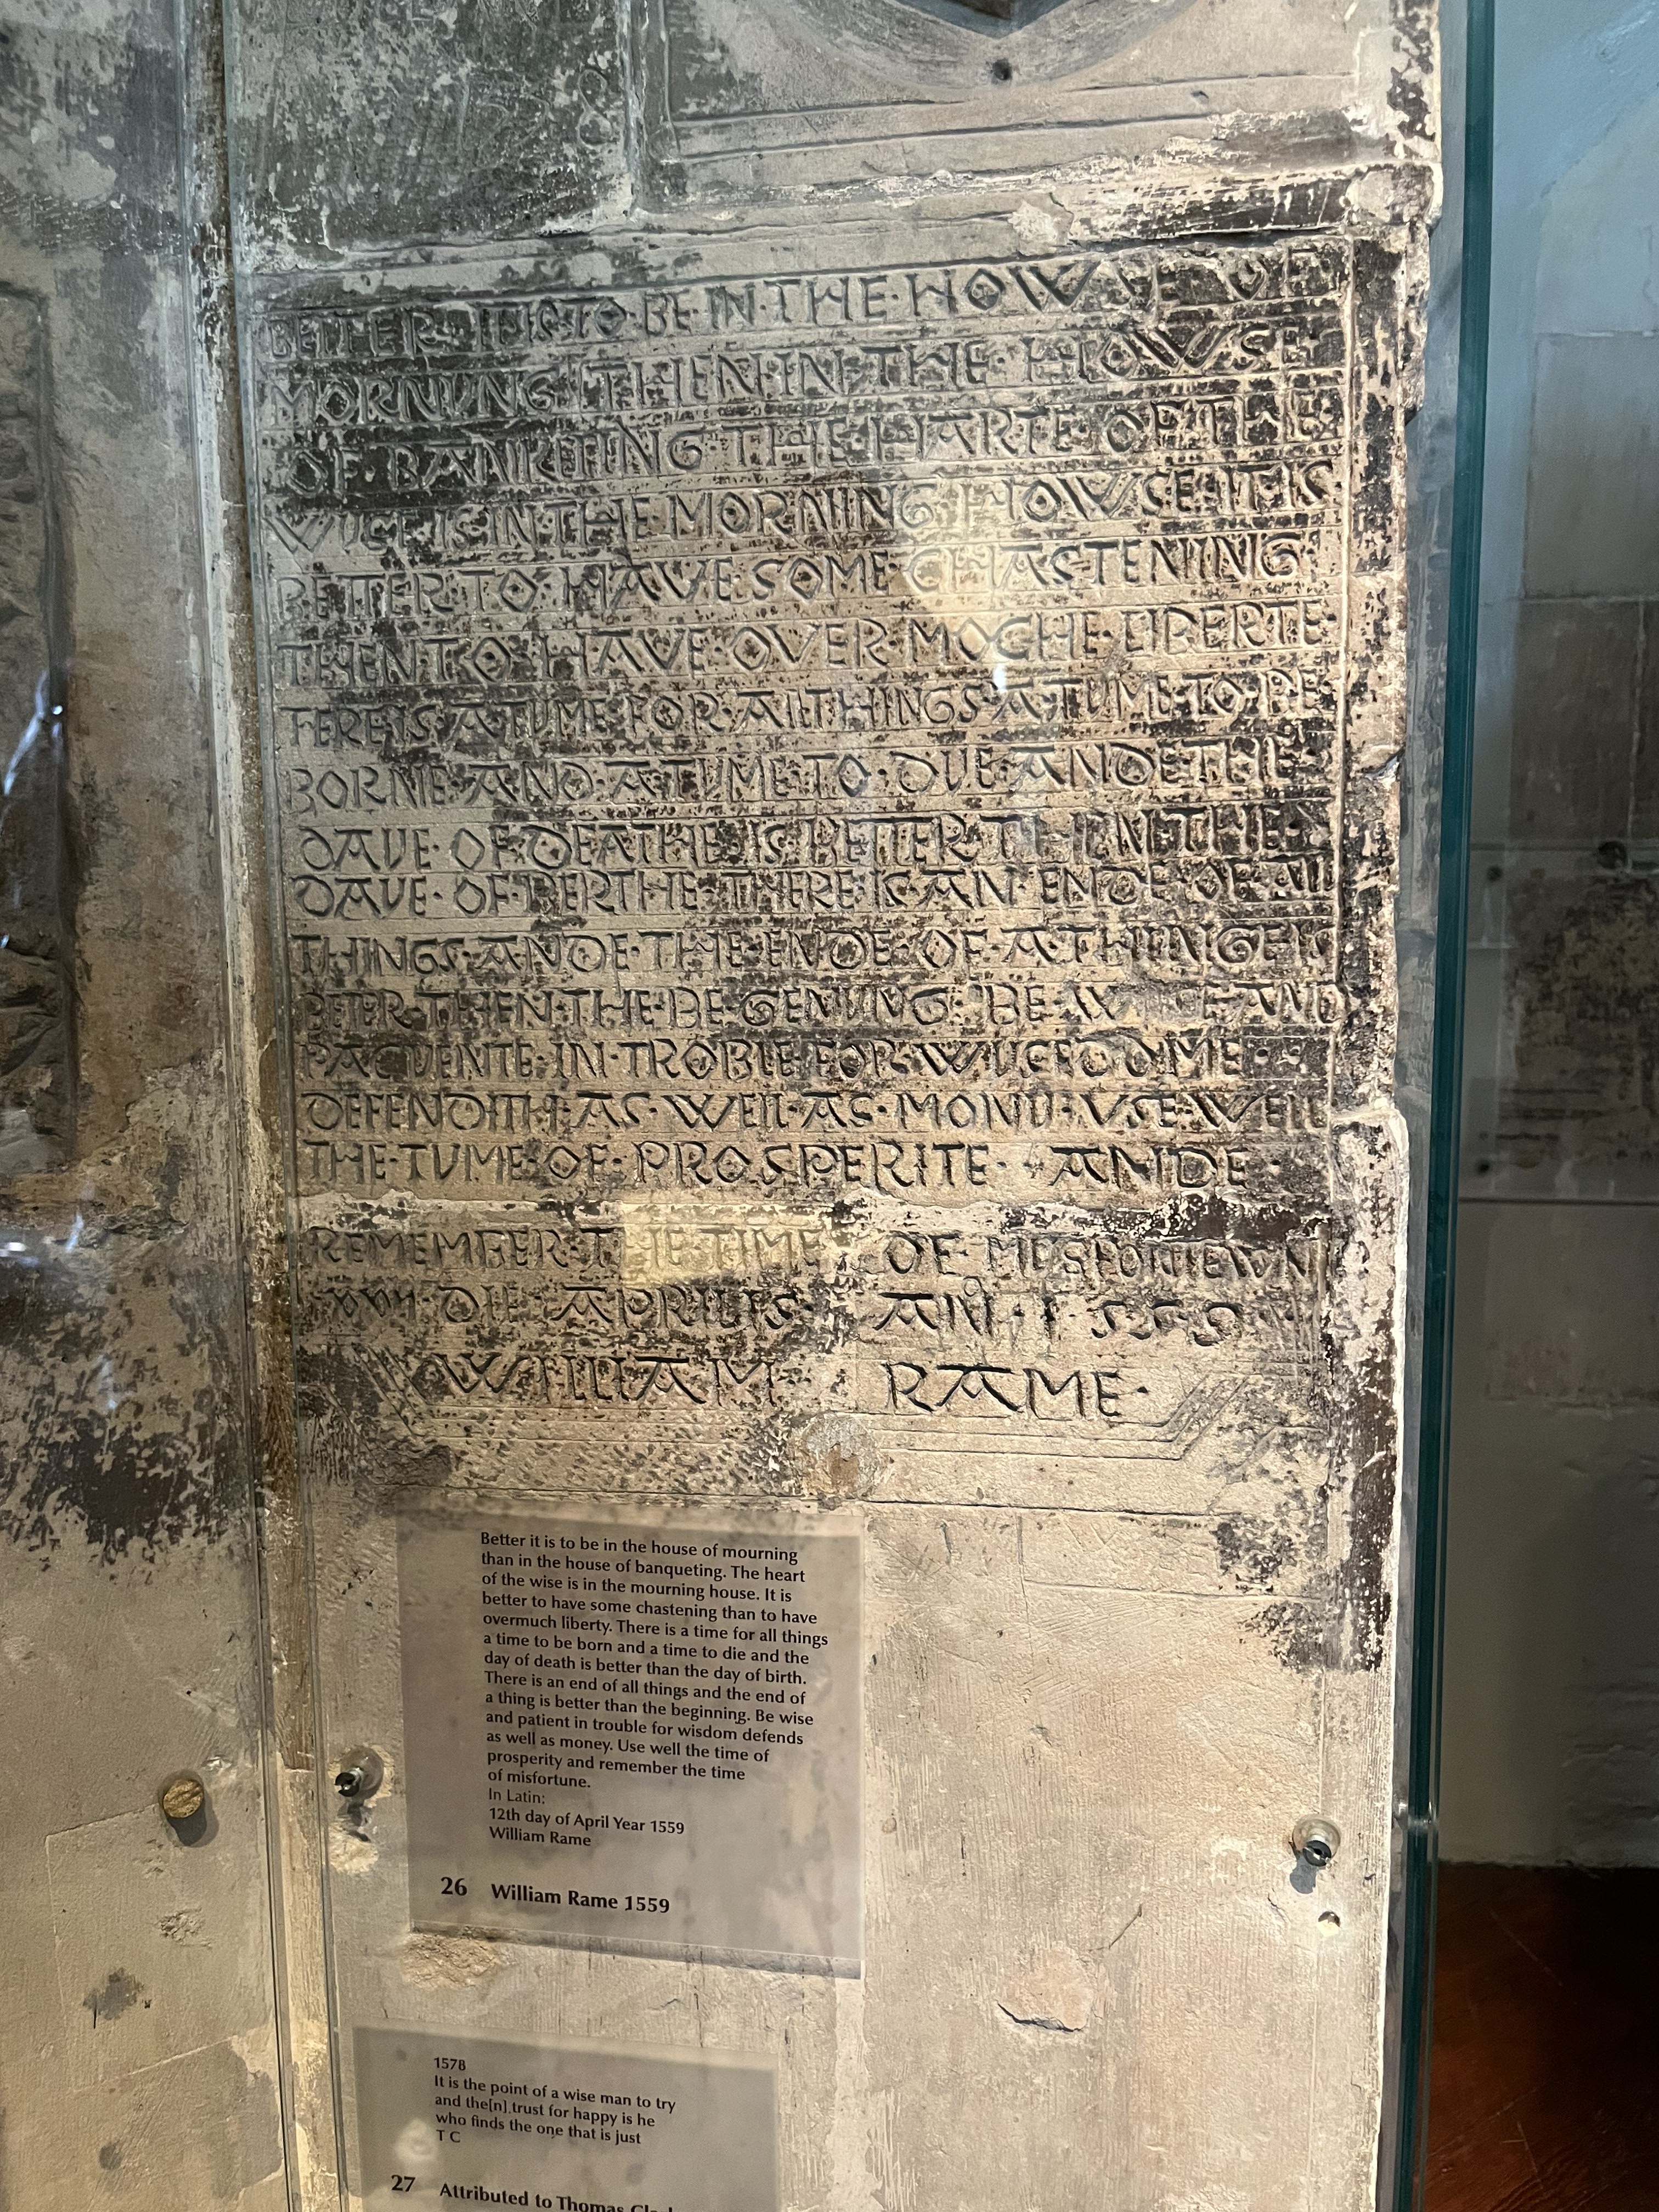 BETTER · IT · IS · TO · BE · IN · THE · HOWSE · OF
MORNVNG · THEN · IN · THE · HOWSE ·
OF · BANKITING · THE · HARTE · OF · THE
WVCE · IS · IN · THE · MORNING · HOWSE · IT · IS
BETTER · TO · HAVE · SOME · CHASTENING
THEN · TO · HAVE · OVER · MOCHE · LIBERTE ·
TERE · IS · A · TVME · FOR · ALL · THINGS · A · TVME · TO · BE
BORNE · AND · A · TVME · TO · DVE · ANDE · THE ·
DAVE · OF · DEATHE · IS · BETTER · THEN · THE ·
DAVE · OF · BERTHE · THERE · IS · AN · ENDE · OF · ALL
THINGS · ANDE · THE · ENDE · OF · A · THENGE · IS
BETER · THEN · THE · BEGENVNG · BE · WVCE · AND
PACVENTE · IN · TROBLE · FOR · WVCEDOME ·
DEFENDITH · AS · WELL · AS · MONV · VSE · WELL
THE · TVME · OF · PROSPERITE · ANDE ·
REMEMBER · THE · TIME OF
DIE · APRILIS · AN · 1559
WILLIAM · RAME ·
Better it is to be in the house of mourning
than in the house of banqueting. The heart
of the wise is in the mourning house. It is
better to have some chastening than to have
overmuch liberty. There is a time for all things
a time to be born and a time to die and the
day of death is better than the day of birth.
There is an end of all things and the end of
a thing is better than the beginning. Be wise
and patient in trouble for wisdom defends
as well as money. Use well the time of
prosperity and remember the time
of misfortune.
In Latin:
12th day of April Year 1559
William Rame
26 William Rame 1559
1578
It is the point of a wise man to try
and the[n] trust for happy is he
who finds the one that is just
T C
27 Attributed to Thomas